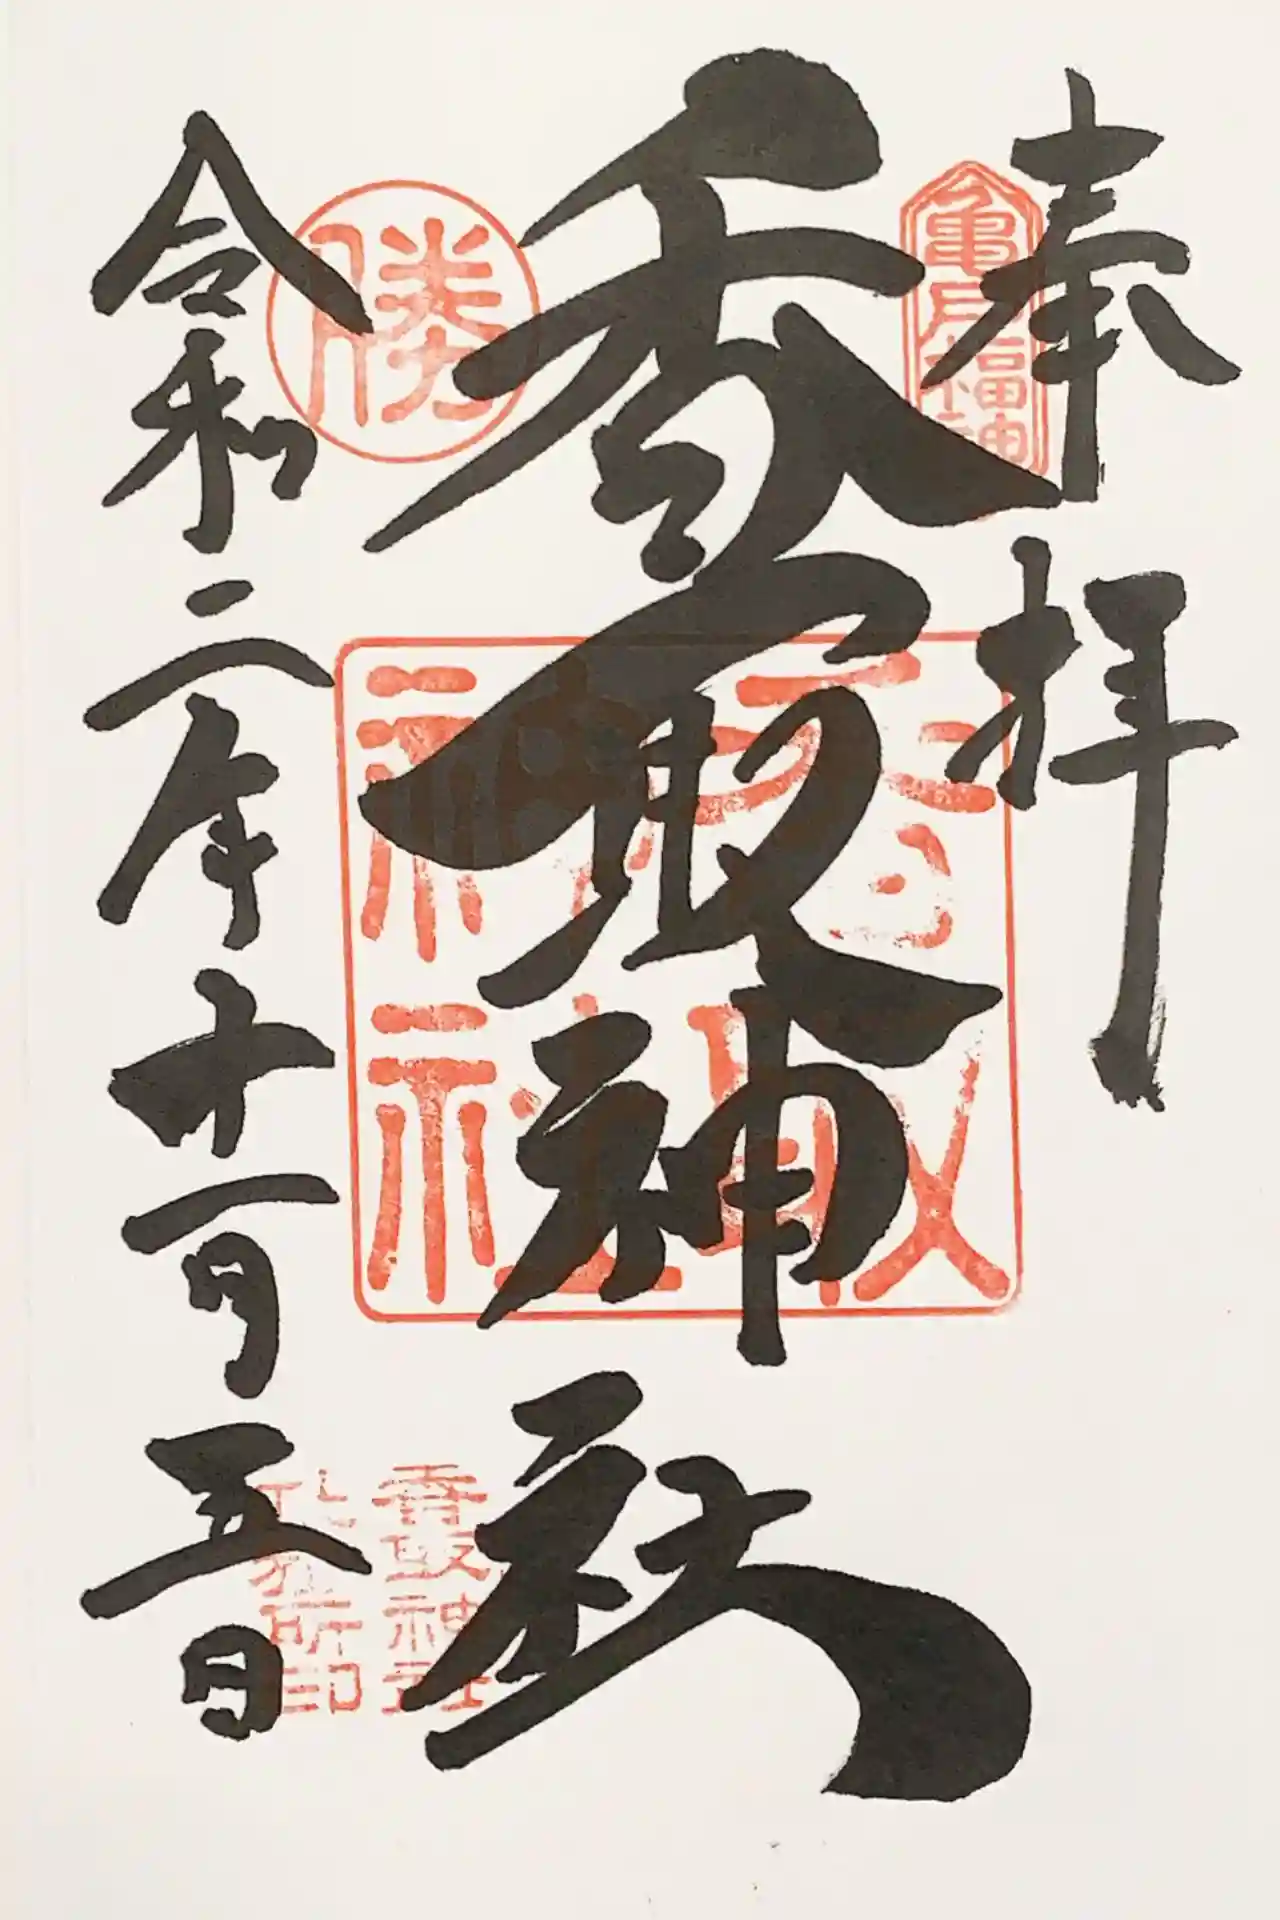 奉拝
亀戸福神
香取神社
香取神社
勝
香取神社
社務所印
令和二年十一月五日